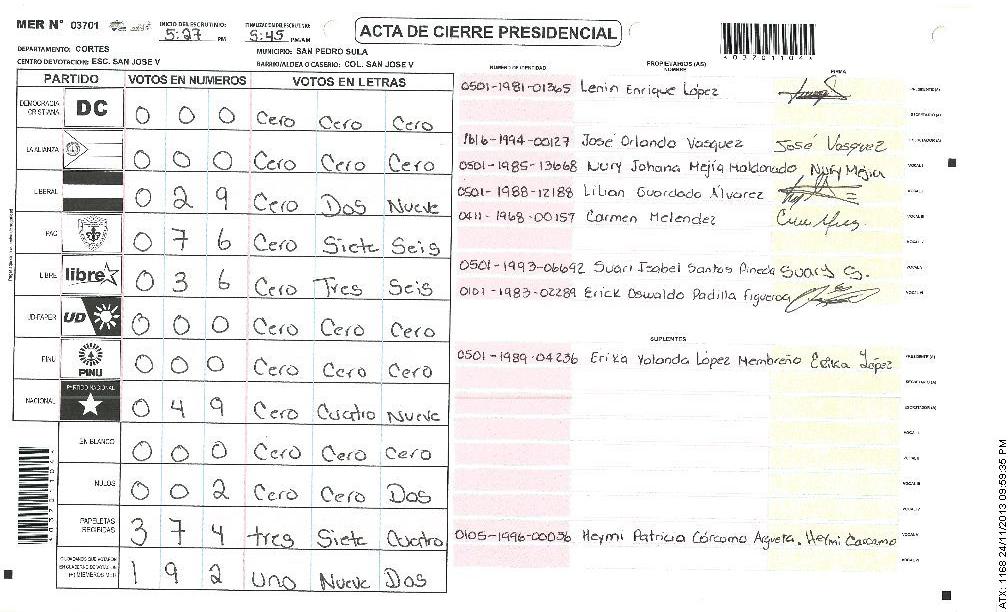 MER N° 03701
INICIO DEL ESCRUTINIO: 5:27 PM
FINALIZACION DEL ESCRUTINIO: 5:45 PM/AM
ACTA DE CIERRE PRESIDENCIAL
DEPARTAMENTO: CORTES
MUNICIPIO: SAN PEDRO SULA
CENTRO DE VOTACION: ESC. SAN JOSE V
BARRIO/ALDEA O CASERIO: COL. SAN JOSE V
PARTIDO VOTOS EN NUMEROS VOTOS EN LETRAS
DEMOCRACIA CRISTIANA DC 0 0 0 Cero Cero Cero
LA ALIANZA 0 0 0 Cero Cero Cero
LIBERAL 0 2 9 Cero Dos Nueve
PAC 0 7 6 Cero Siete Seis
LIBRE libre 0 3 6 Cero Tres Seis
UD-FAPER UD 0 0 0 Cero Cero Cero
PINU PINU 0 0 0 Cero Cero Cero
NACIONAL PARTIDO NACIONAL 0 4 9 Cero Cuatro Nueve
EN BLANCO 0 0 0 Cero Cero Cero
NULOS 0 0 2 Cero Cero Dos
PAPELETAS RECIBIDAS 3 7 4 tres Siete Cuatro
CIUDADANOS QUE VOTARON 1 9 2 Uno Nueve Dos
NUMERO DE IDENTIDAD
PROPIETARIOS (AS)
NOMBRE
FIRMA
0501-1981-01365 Lenin Enrique López PRESIDENTE(A)
SECRETARIO(A)
1616-1994-00127 José Orlando Vasquez José Vasquez ESCRUTADOR(A)
0501-1985-13668 Nury Johana Mejía Maldonado Nury Mejia VOCAL I
0501-1988-12188 Lilian Guardado Alvarez VOCAL II
0411-1968-00157 Carmen Melendez VOCAL III
0501-1993-06692 Suari Isabel Santos Pineda Suary S. VOCAL V
0101-1983-02289 Erick Oswaldo Padilla Figueroa VOCAL VI
SUPLENTES
0501-1989-04236 Erika Yolanda López Membreño Erika López PRESIDENTE(A)
SECRETARIO(A)
ESCRUTADOR(A)
VOCAL I
VOCAL II
VOCAL III
0105-1996-00036 Heymi Patricia Cárcamo Argueta. Heymi Carcamo VOCAL V
VOCAL VI
ATX: 1168 24/11/2013 09:59:35 PM